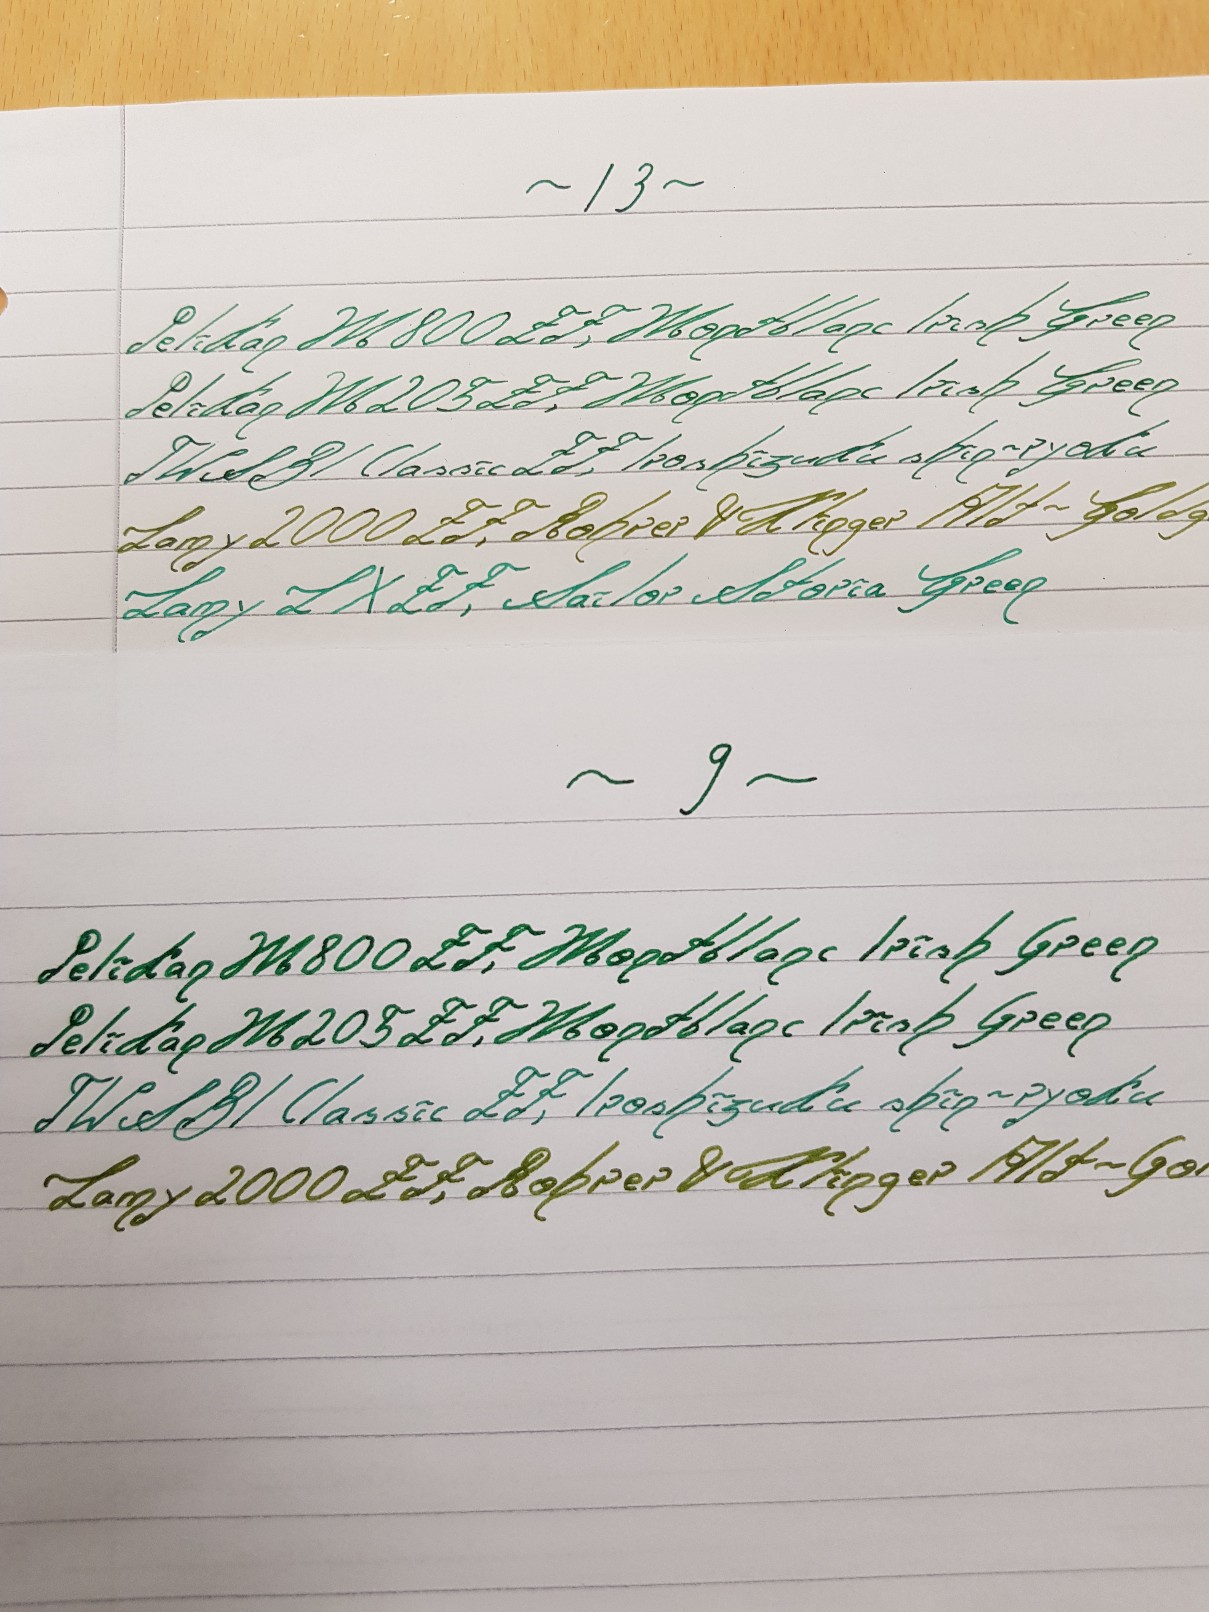 ~13~
Pelikan M800 EF, Montblanc Irish Green
Pelikan M205 EF, Montblanc Irish Green
TWSBI Classic EF, Iroshizuku shin-ryoku
Lamy 2000 EF, Rohrer & Klingner Alt-Goldg
Lamy LX EF, Sailor Storia Green
~ 9 ~
Pelikan M800 EF, Montblanc Irish Green
Pelikan M205 EF, Montblanc Irish Green
TWSBI Classic EF, Iroshizuku shin-ryoku
Lamy 2000 EF, Rohrer & Klingner Alt-Gol